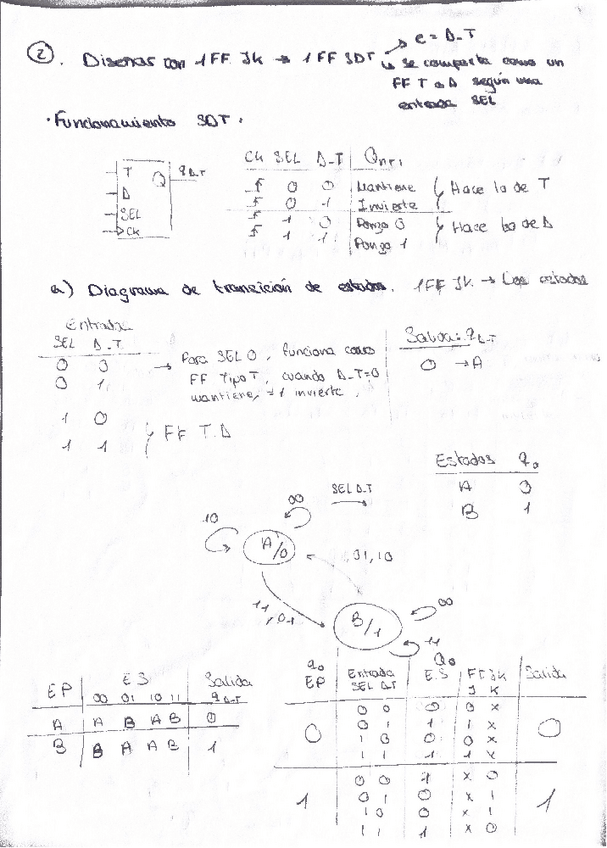 2. Diseñar con 1 FF JK → 1 FF SDT → e = D_T
↳ se comporta como un
FF T o D según una
entrada SEL
· Funcionamiento SDT:
T Q q D_T
D
SEL
Ck
Ck SEL D_T Qn+1
0 0 Mantiene
0 1 Invierte
Hace lo de T
1 0 Ponga 0
1 1 Ponga 1
Hace lo de D
a) Diagrama de transición de estados. 1 FF JK → Los estados
Entrada
SEL D_T
0 0
0 1
1 0
1 1
→ Para SEL 0, funciona como
FF Tipo T, cuando D_T=0
mantiene, 1 invierte.
FF T.D
Salida: q D_T
0 → A
Estados q0
A 0
B 1
SEL D_T
00
10
A/0
01, 10
11, 01
B/1
00
11
EP E S Salida
00 01 10 11 q D_T
A A B A B 0
B B A A B 1
q0 Entrada Q0 FF JK Salida
EP SEL D_T E.S J K
0 0 0 0 0 X 0
0 1 1 1 X
1 0 0 0 X
1 1 1 1 X
1 0 0 1 X 0 1
0 1 0 X 1
1 0 0 X 1
1 1 1 X 0